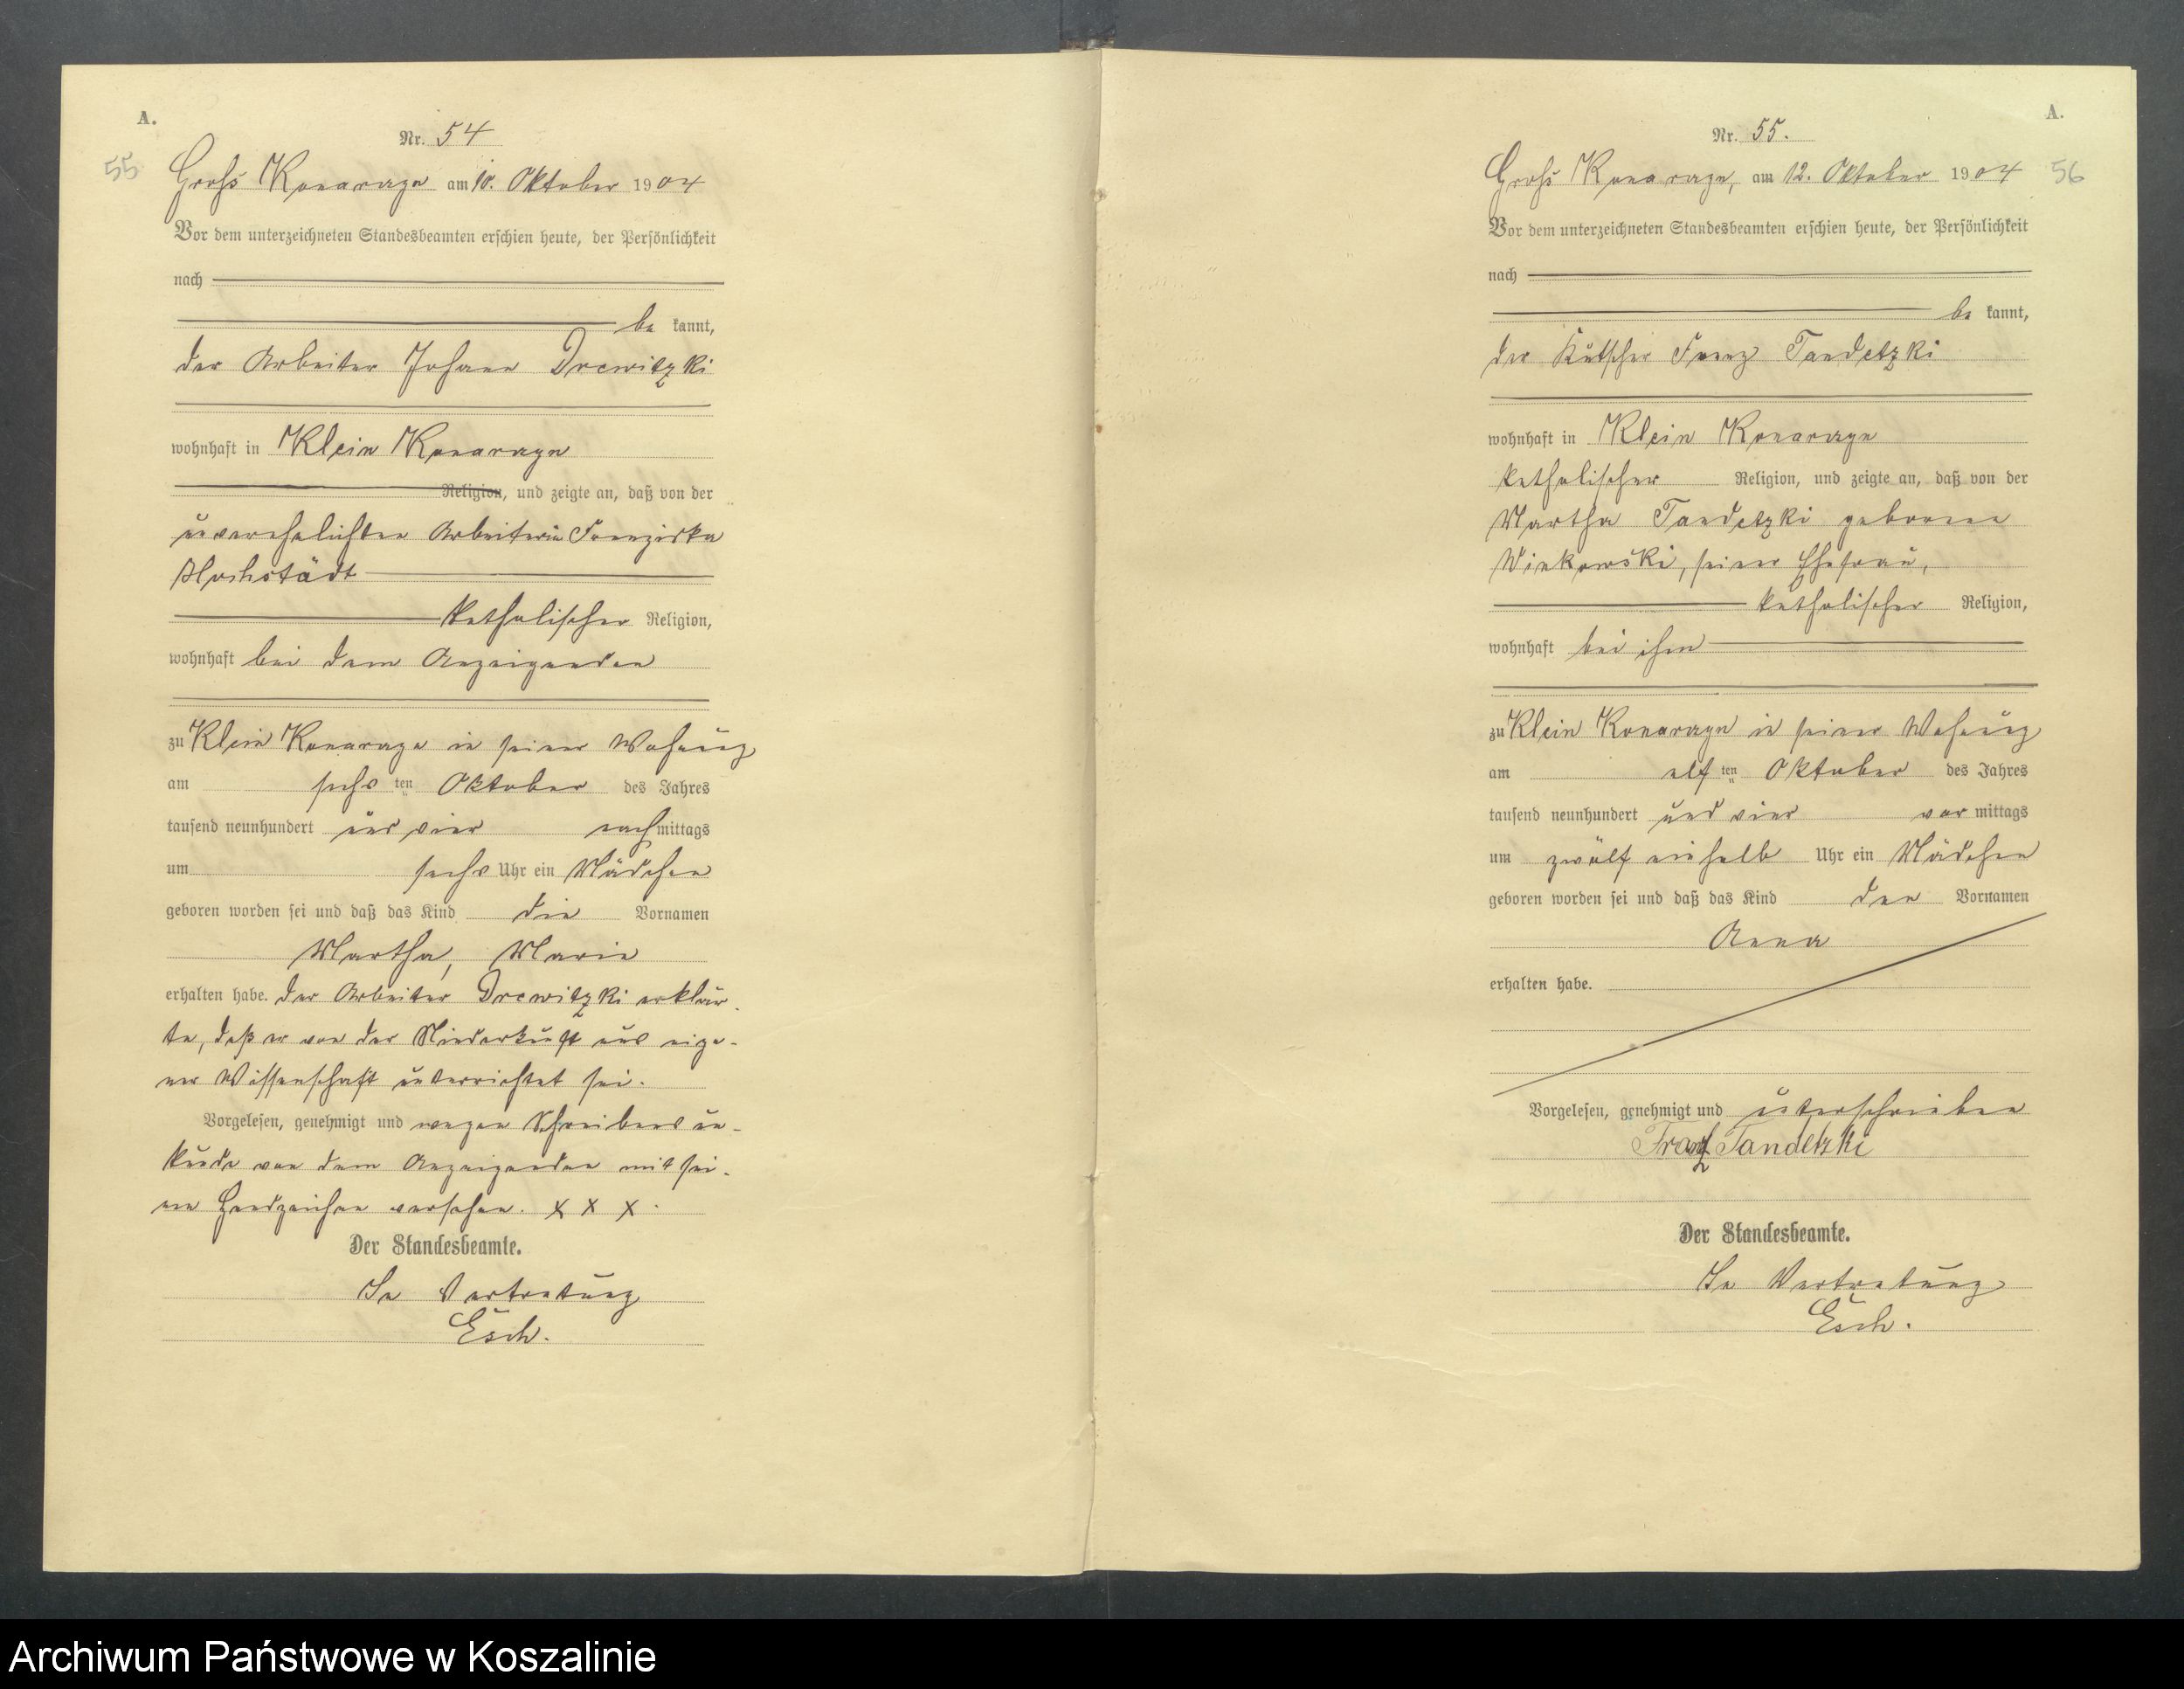 A.
Nr. 54
55
Groß Konarczyn am 10. Oktober 1904
Vor dem unterzeichneten Standesbeamten erschien heute, der Persönlichkeit
nach
be kannt,
der Arbeiter Johann Drewitzki
wohnhaft in Klein Konarczyn
Religion, und zeigte an, daß von der
unverehelichten Arbeiterin Franziska
katholischer Religion,
wohnhaft bei dem Anzeigenden
zu Klein Konarczyn in seiner Wohnung
am sechs ten Oktober des Jahres
tausend neunhundert und vier nach mittags
um sechs Uhr ein Mädchen
geboren worden sei und daß das Kind die Vornamen
Martha, Marie
erhalten habe. Der Arbeiter Drewitzki erklär-
te, daß er von der Niederkunft aus eige-
ner Wissenschaft unterrichtet sei.
Vorgelesen, genehmigt und wegen Schreibens un-
kunde von dem Anzeigenden mit sei-
nen Handzeichen versehen. x x x.
Der Standesbeamte.
In Vertretung
Esch.
A.
Nr. 55.
Groß Konarczyn, am 12. Oktober 1904
56
Vor dem unterzeichneten Standesbeamten erschien heute, der Persönlichkeit
nach
be kannt,
der Kutscher Franz Tandetzki
wohnhaft in Klein Konarczyn
katholischer Religion, und zeigte an, daß von der
Martha Tandetzki geborene
Winkowski, seiner Ehefrau,
katholischer Religion,
wohnhaft bei ihm
zu Klein Konarczyn in seiner Wohnung
am elf ten Oktober des Jahres
tausend neunhundert und vier vor mittags
um zwölf einhalb Uhr ein Mädchen
geboren worden sei und daß das Kind den Vornamen
Anna
erhalten habe.
Vorgelesen, genehmigt und unterschrieben
Franz Tandetzki
Der Standesbeamte.
In Vertretung
Esch.
Archiwum Państwowe w Koszalinie